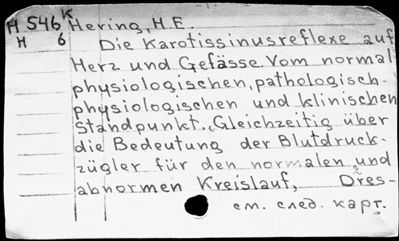 H 546 K Hering, H E.
H 6 Die Karotissinusreflexe auf
Herz und Gefässe Vom normal
physiologischen, pathologisch-
physiologischen und klinischen
Standpunkt. Gleichzeitig über
die Bedeutung der Blutdruck-
zügler für den normalen und
abnormen Kreislauf, Dres-
см. след. карт.